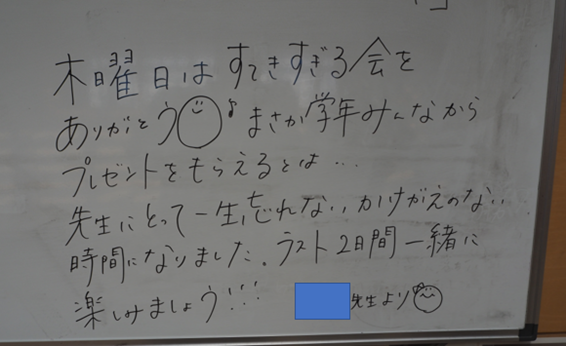 木曜日は すてきすぎる会を
ありがとう♪ まさか学年みんなから
プレゼントをもらえるとは…
先生にとって一生忘れない、かけがえのない
時間になりました。ラスト2日間一緒に
楽しみましょう!!! 先生より